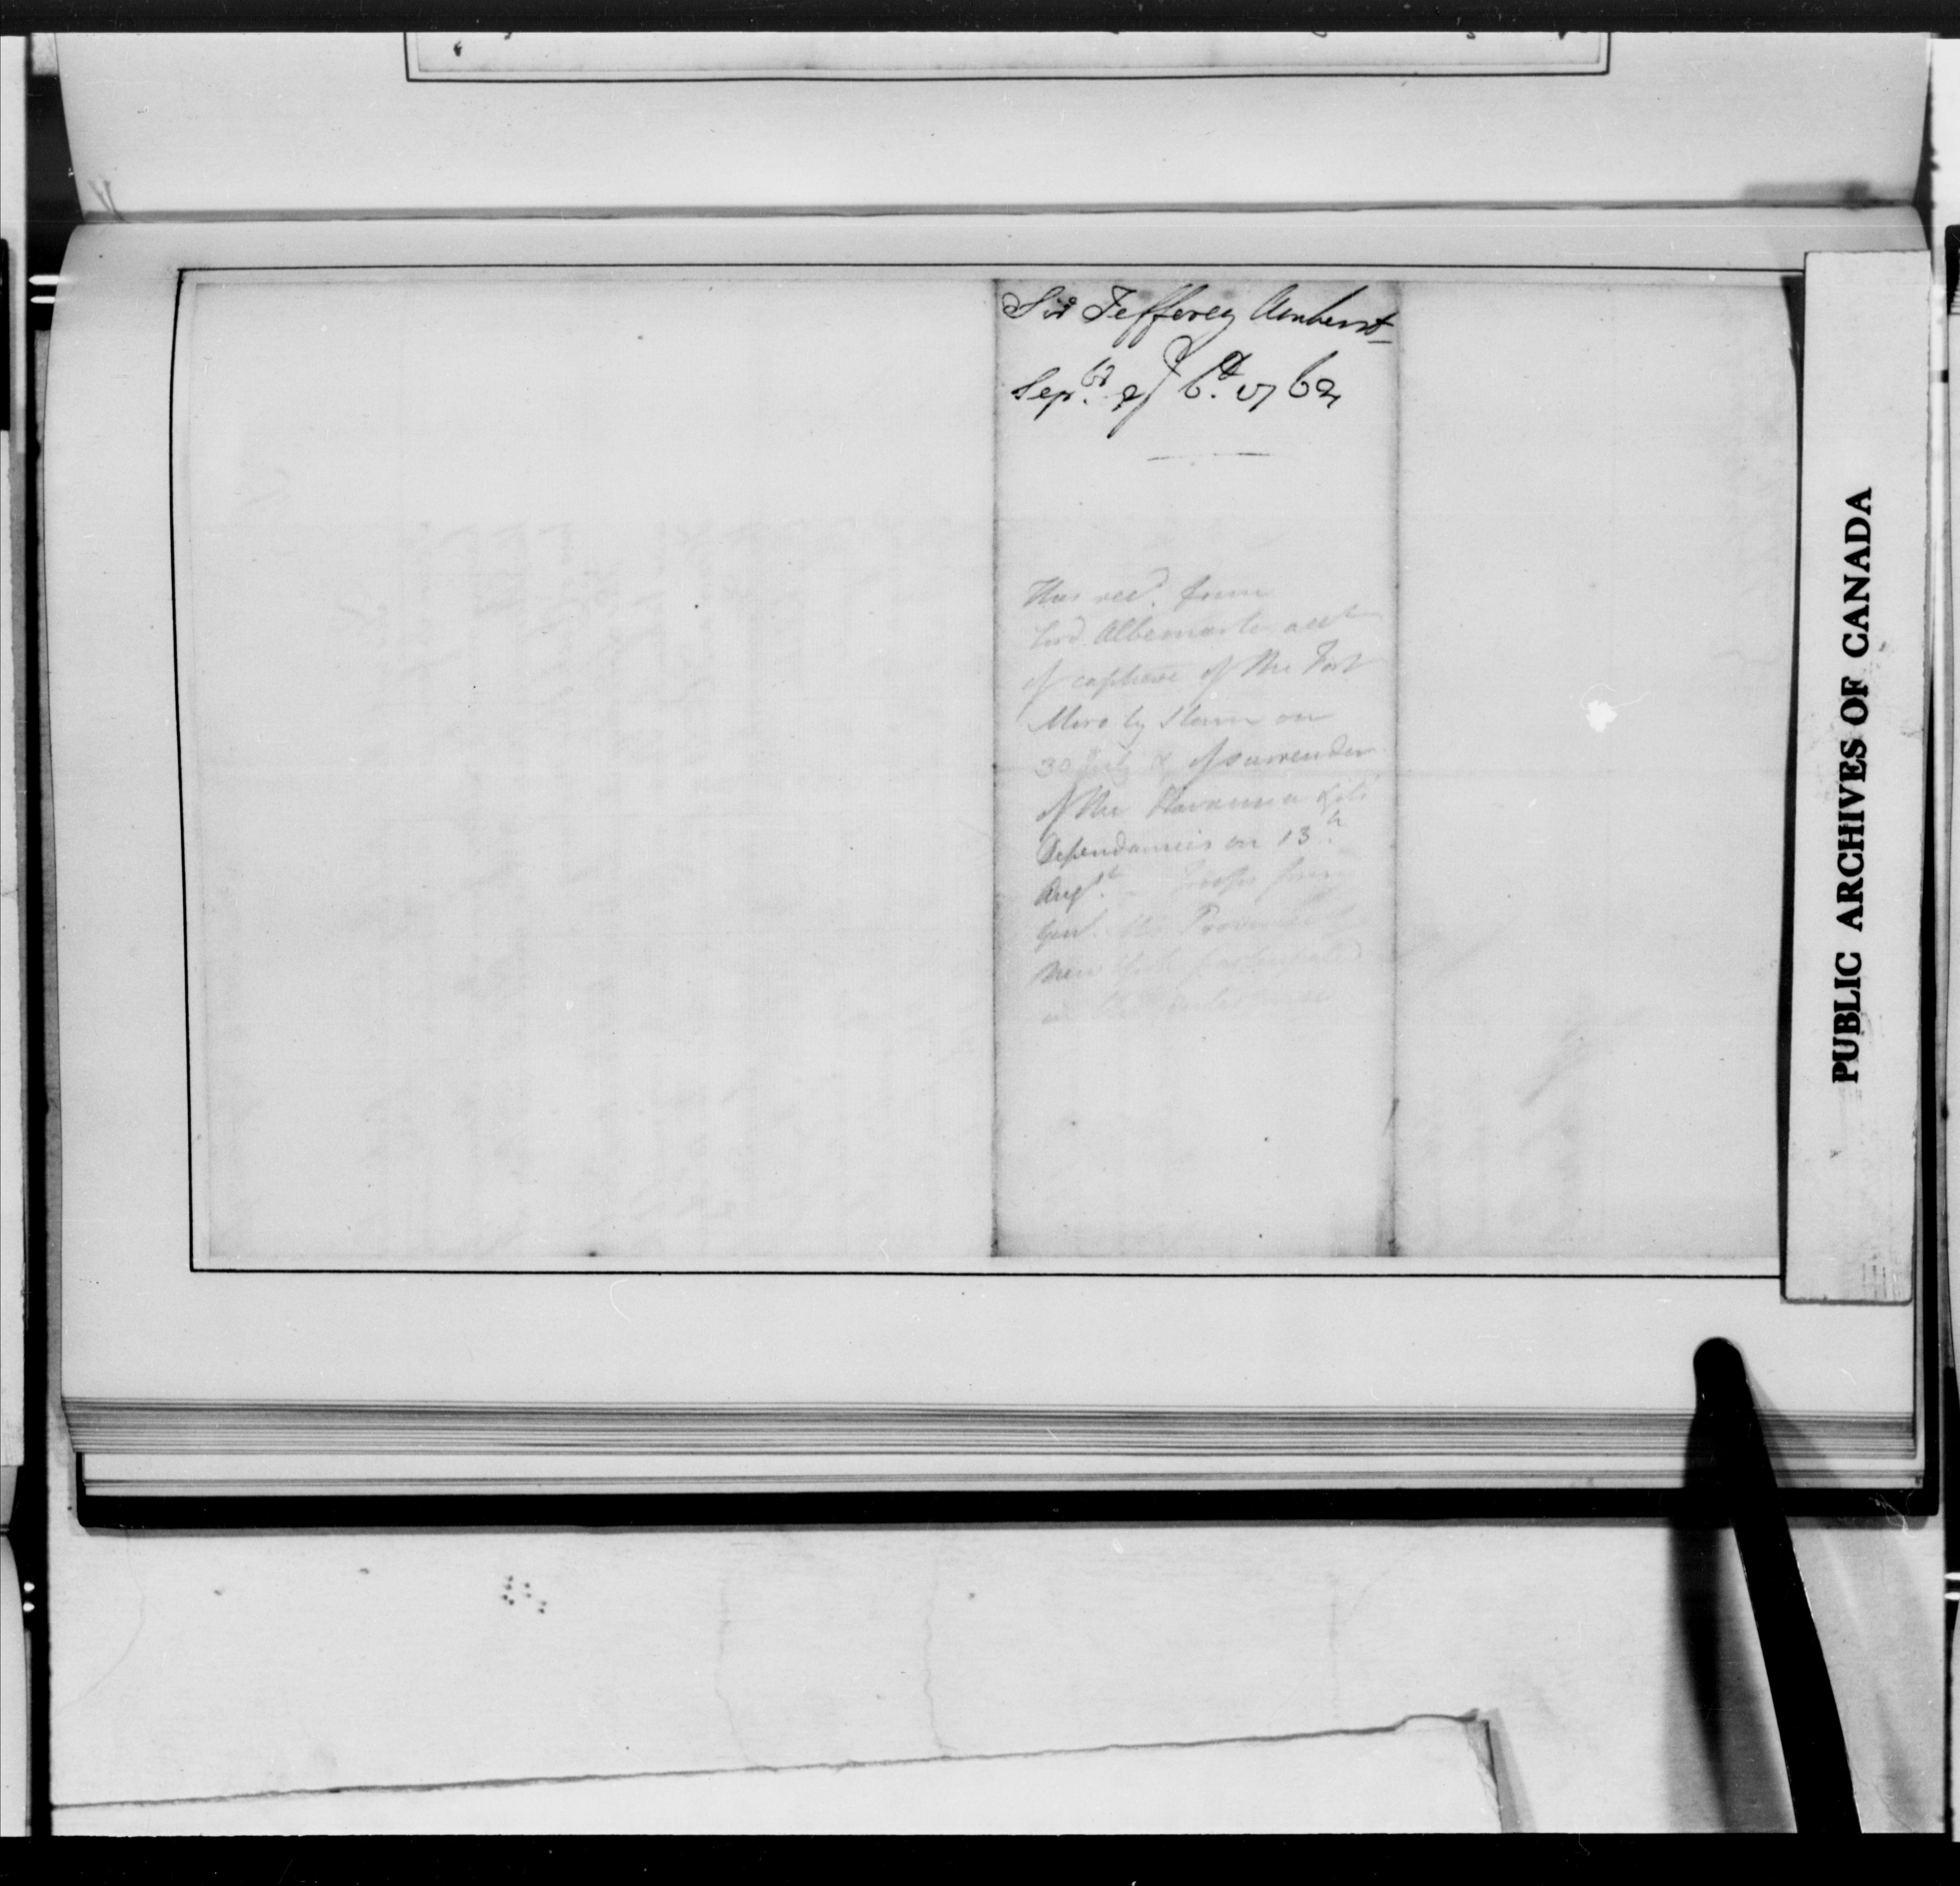 Sir Jefferey Amherst
Sepbr. ye 6th. 1762
Has recd. from
Lord Albemarle acct
of capture of the Fort
Moro by Storm on
30 July & of surrender
of the Havanna & its
Dependancies on 13th
Augst. Troops from
Govt. the Province of
New York participated
in the
PUBLIC ARCHIVES OF CANADA